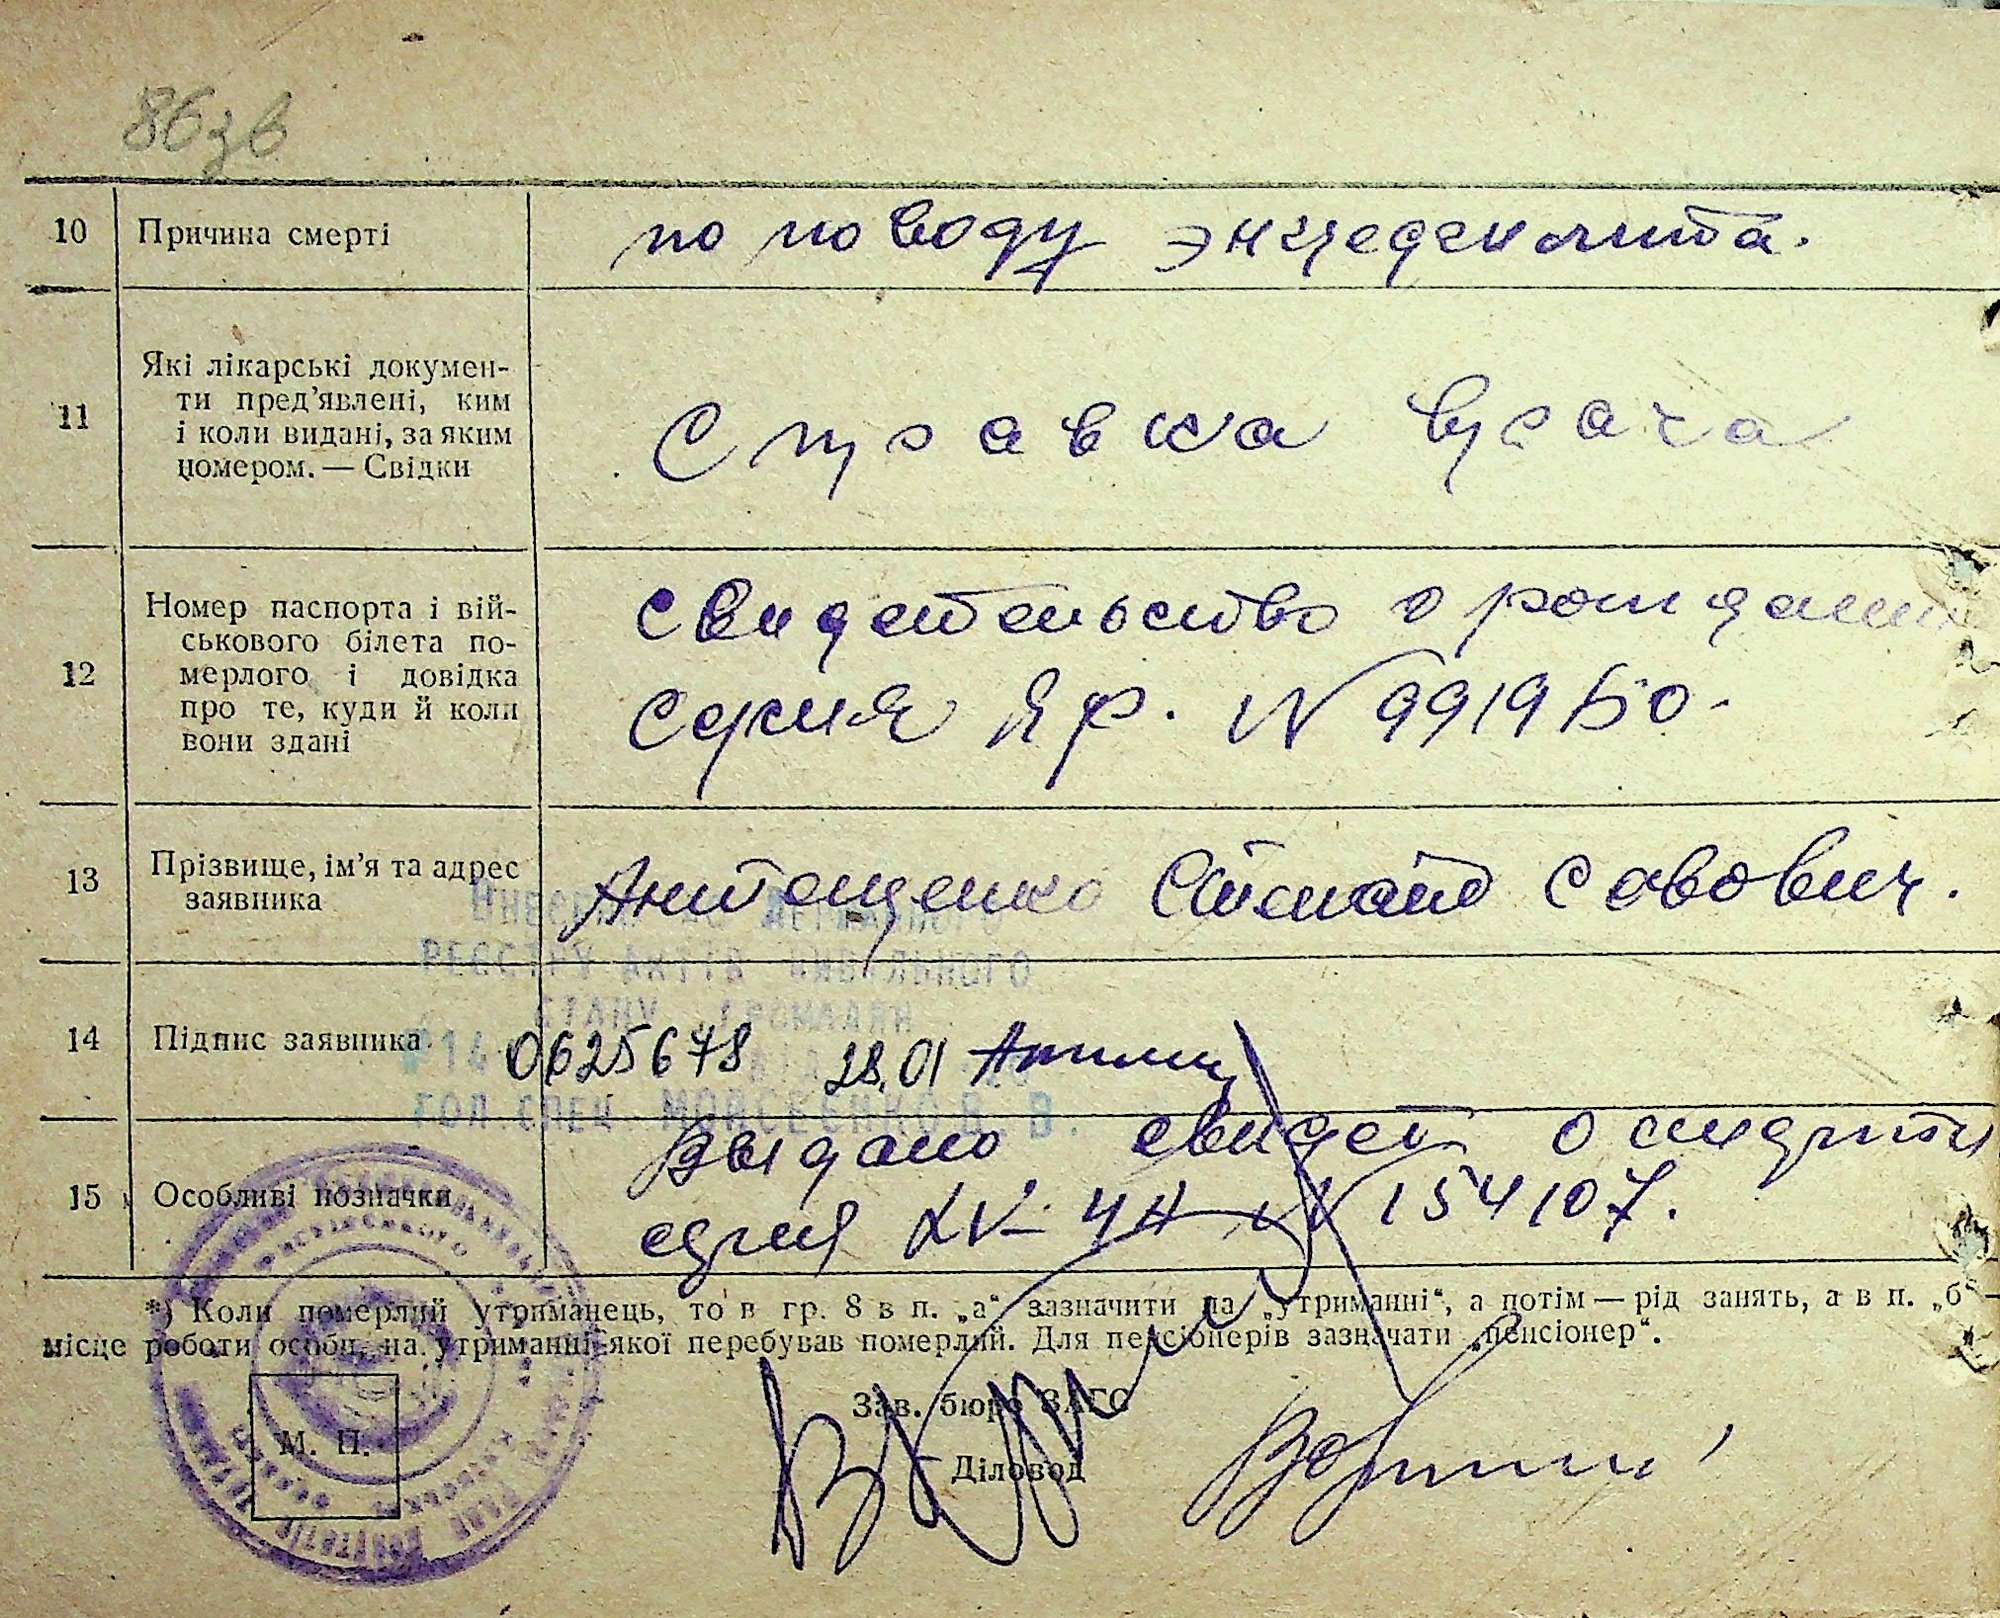 86зв
10 Причина смерті по поводу энцефалита.
11 Які лікарські докумен-
ти пред'явлені, ким
і коли видані, за яким
номером. — Свідки
Справка врача
12 Номер паспорта і вій-
ськового білета по-
мерлого і довідка
про те, куди й коли
вони здані
свидетельство о рождении
серия Яр. N 991950.
13 Прізвище, ім'я та адрес
заявника
Антощенко Савович.
Внесено до Державного
реєстру актів цивільного
стану громадян
14 Підпис заявника
0625678 28.01
гол. спец. Моисеенко В. В.
15 Особливі позначки
Выдано свидет о смерти
серия IV-ЧН N 154107.
*) Коли померлий утриманець, то в гр. 8 в п. „а“ зазначити на „утриманні“, а потім — рід занять, а в п. „б“ —
місце роботи особи, на утриманні якої перебував померлий. Для пенсіонерів зазначати „пенсіонер“.
Зав. бюро ЗАГС
М. П.
Діловод